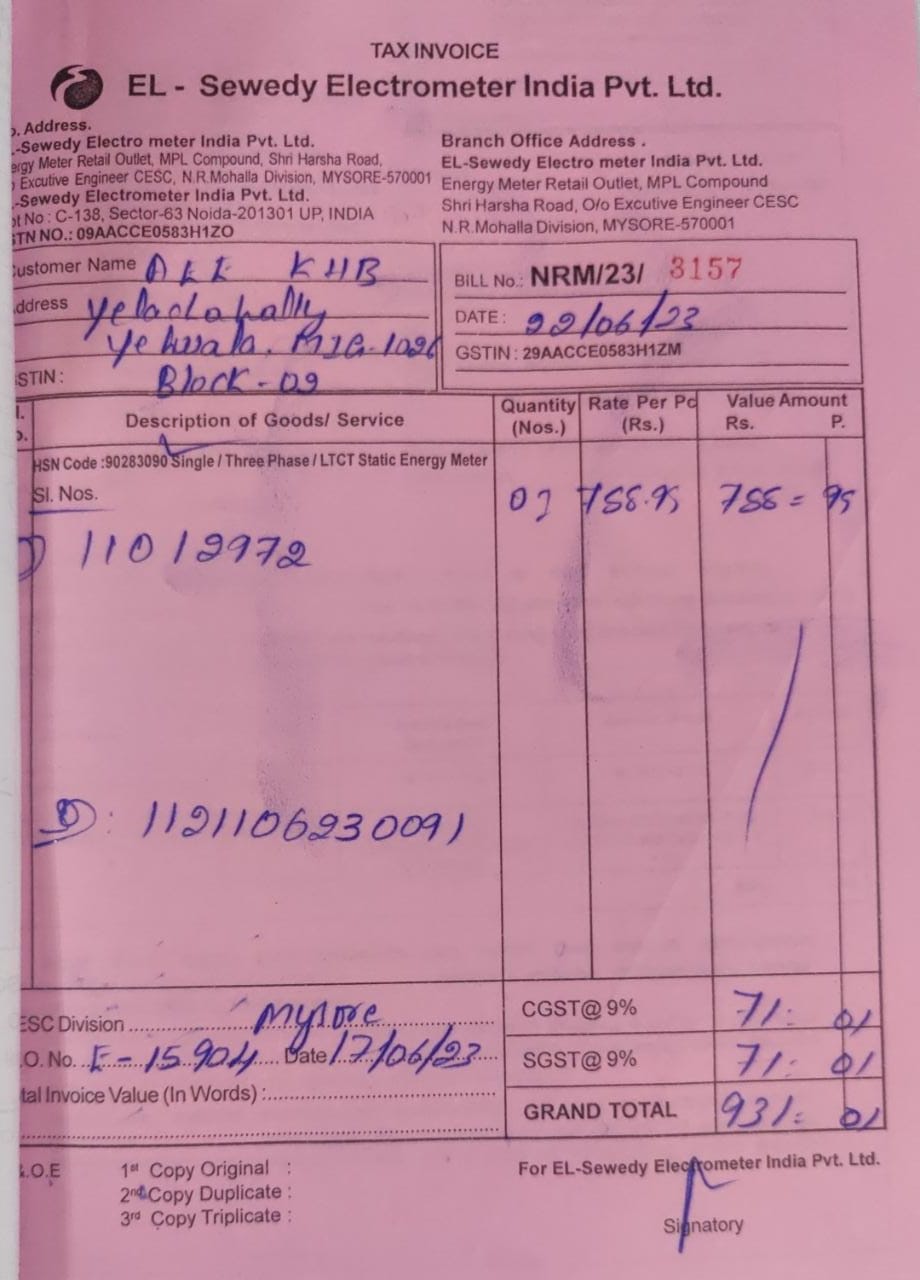 TAX INVOICE
EL - Sewedy Electrometer India Pvt. Ltd.
. Address.
-Sewedy Electro meter India Pvt. Ltd.
ergy Meter Retail Outlet, MPL Compound, Shri Harsha Road,
Excutive Engineer CESC, N.R.Mohalla Division, MYSORE-570001
-Sewedy Electrometer India Pvt. Ltd.
ot No : C-138, Sector-63 Noida-201301 UP, INDIA
STN NO.: 09AACCE0583H1ZO
Branch Office Address .
EL-Sewedy Electro meter India Pvt. Ltd.
Energy Meter Retail Outlet, MPL Compound
Shri Harsha Road, O/o Excutive Engineer CESC
N.R.Mohalla Division, MYSORE-570001
ustomer Name KHB
ddress
Block - 09
STIN :
BILL No.: NRM/23/ 3157
DATE : 22/06/23
GSTIN : 29AACCE0583H1ZM
Description of Goods/ Service
Quantity (Nos.)
Rate Per Pc (Rs.)
Value Amount
Rs. P.
HSN Code :90283090 Single / Three Phase / LTCT Static Energy Meter
Sl. Nos.
11012972
: 1121106230091
ESC Division Mysore
.O. No. E - 15904 Date 17/06/23
tal Invoice Value (In Words) :
CGST@ 9% 71 : 01
SGST@ 9% 71 : 01
GRAND TOTAL 931 : 01
.O.E
1st Copy Original :
2nd Copy Duplicate :
3rd Copy Triplicate :
For EL-Sewedy Electrometer India Pvt. Ltd.
Signatory